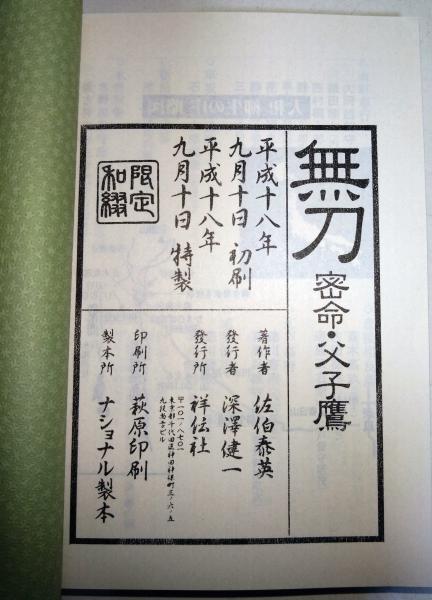 無刀
密命・父子鷹
平成十八年
九月十日 初刷
平成十八年
九月十日 特製
限定
和綴
著作者 佐伯泰英
發行者 深澤健一
發行所 祥伝社
〒一〇一-八七〇一
東京都千代田区神田神保町三-六-五
九段尚学ビル
印刷所 萩原印刷
製本所 ナショナル製本